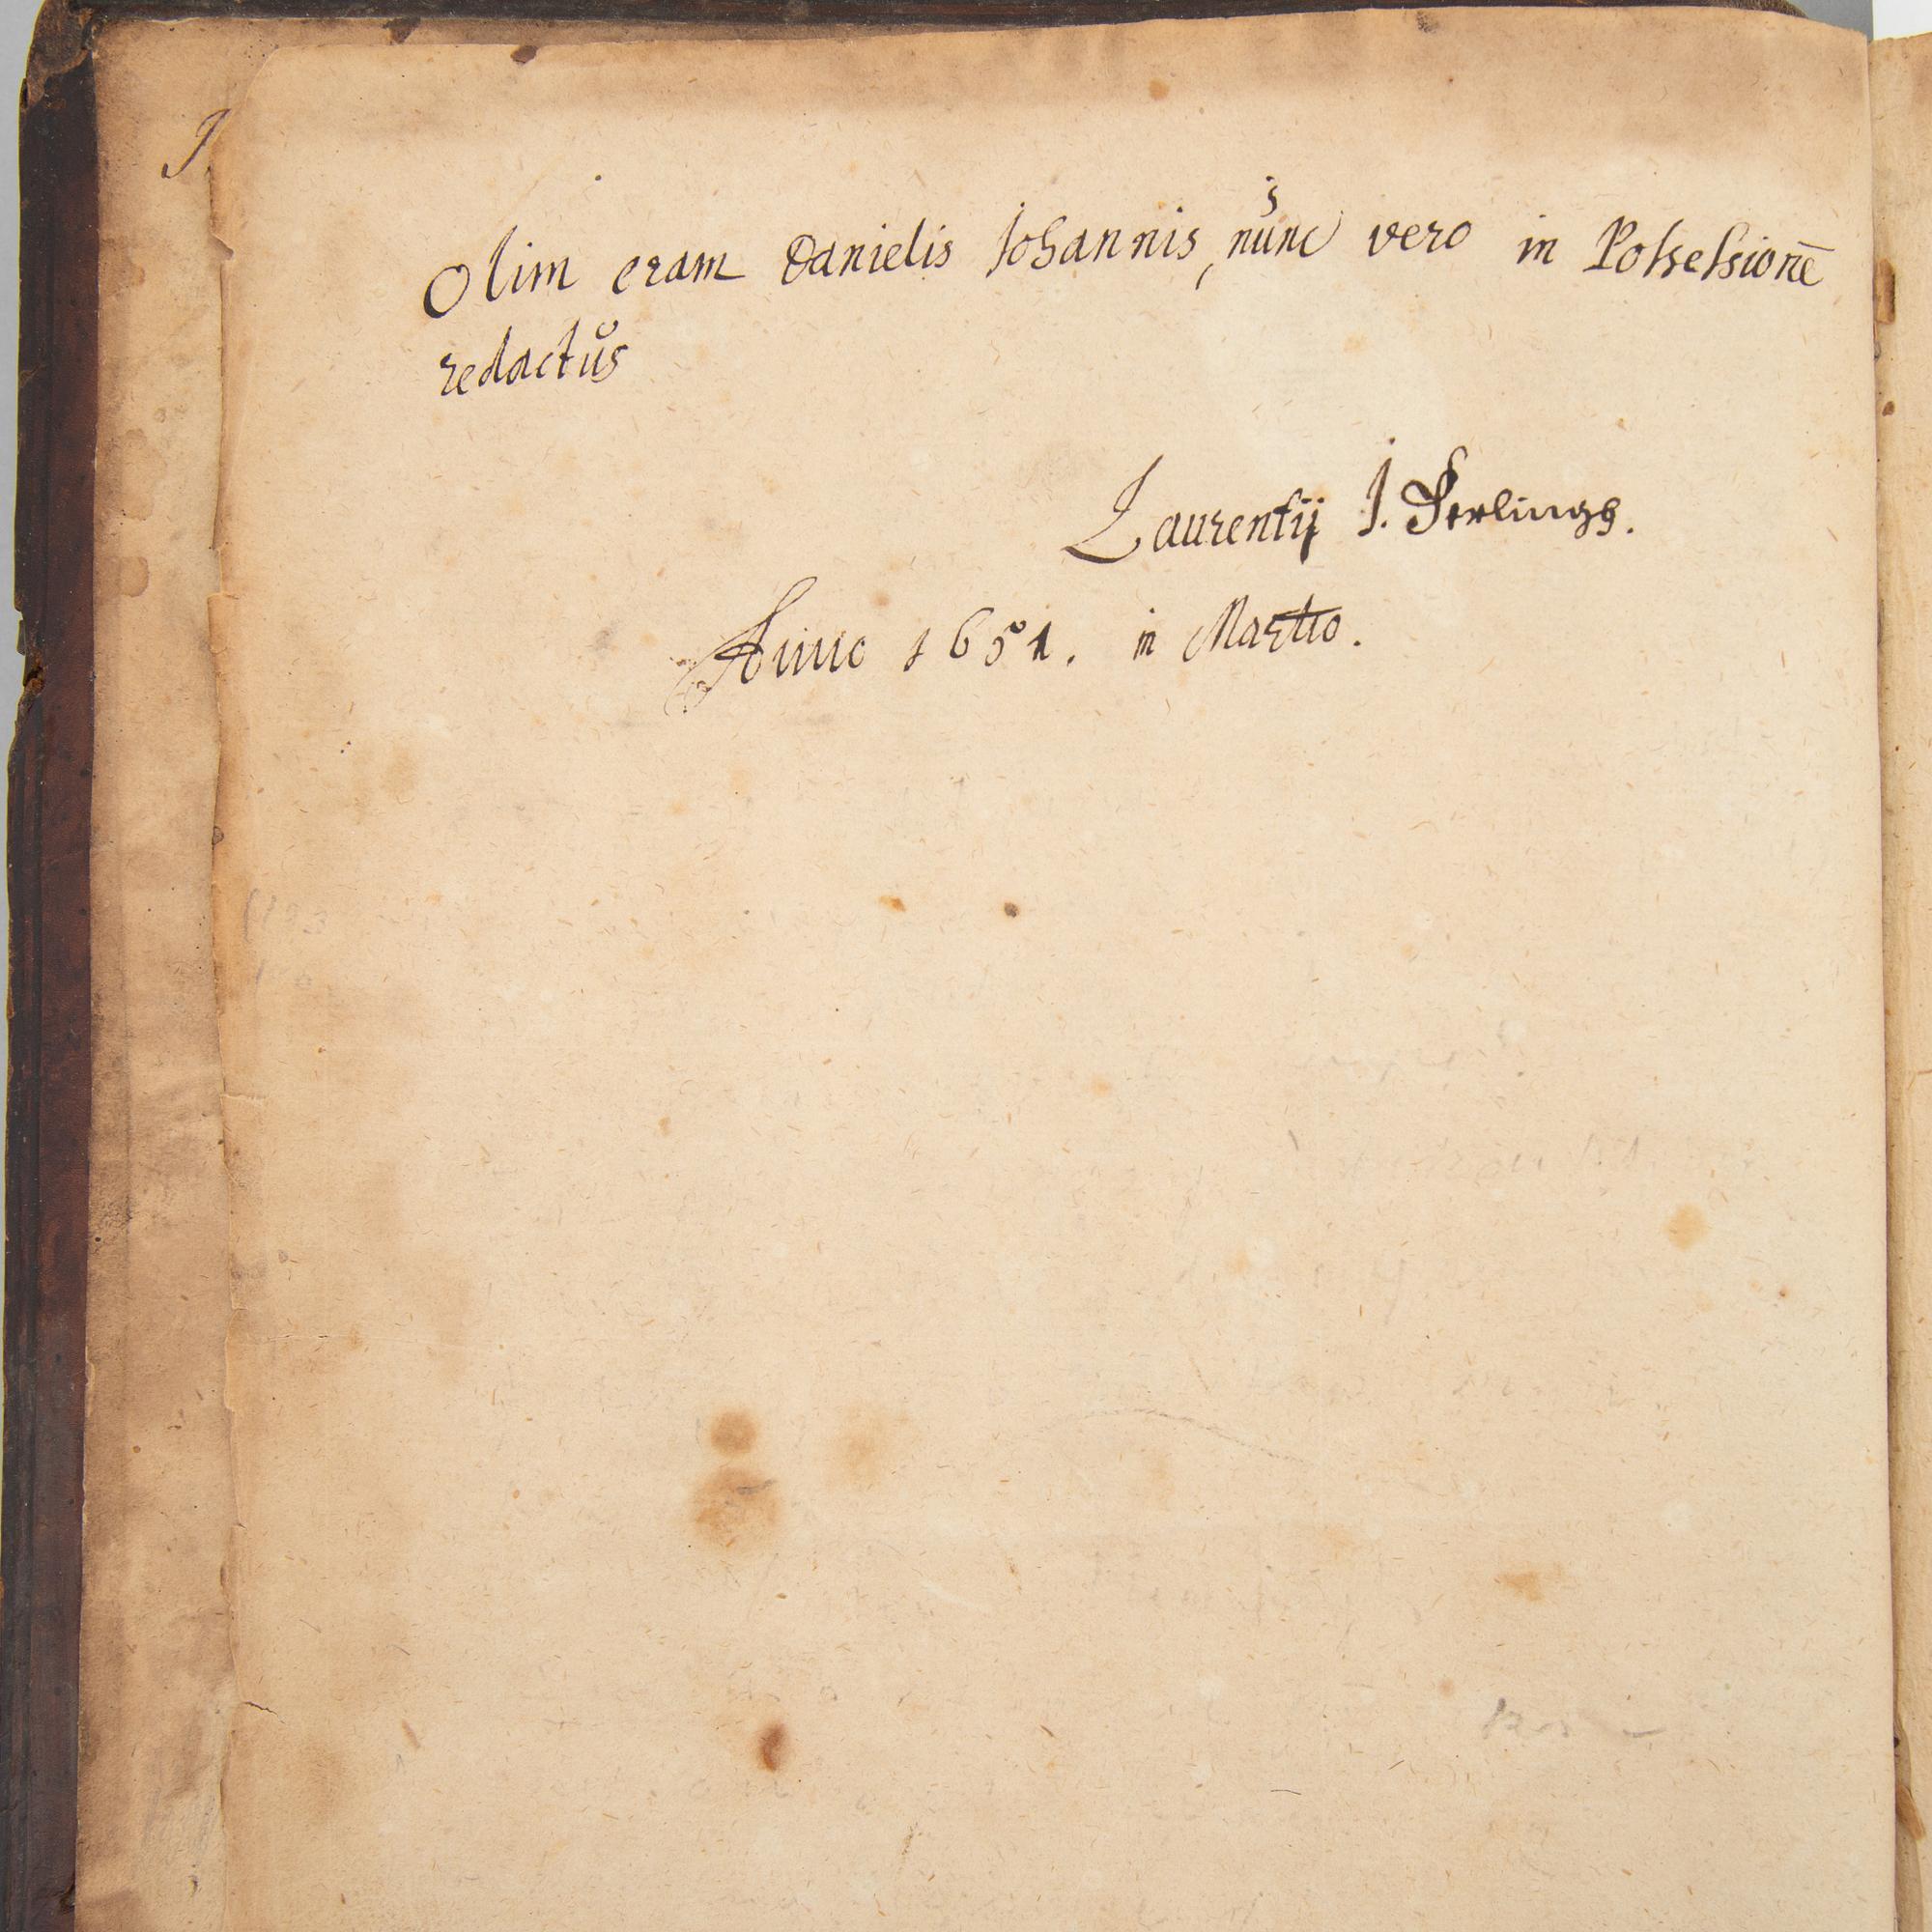 J.
Olim eram Danielis Johannis, nunc vero in Possessionē
redactus
Laurentij J. Serlingh.
Anno 1651. in Martio.